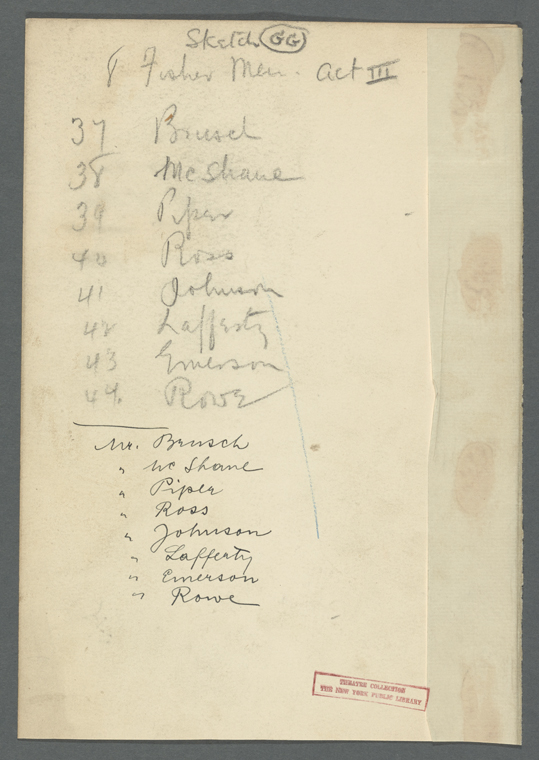 Sketch GG
8 Fisher Men. Act III
37 Brusch
38 McShane
39 Piper
40 Ross
41 Johnson
42 Lafferty
43 Emerson
44. Rowe
Mr. Brusch
" McShane
" Piper
" Ross
" Johnson
" Lafferty
" Emerson
" Rowe
THEATRE COLLECTION
THE NEW YORK PUBLIC LIBRARY